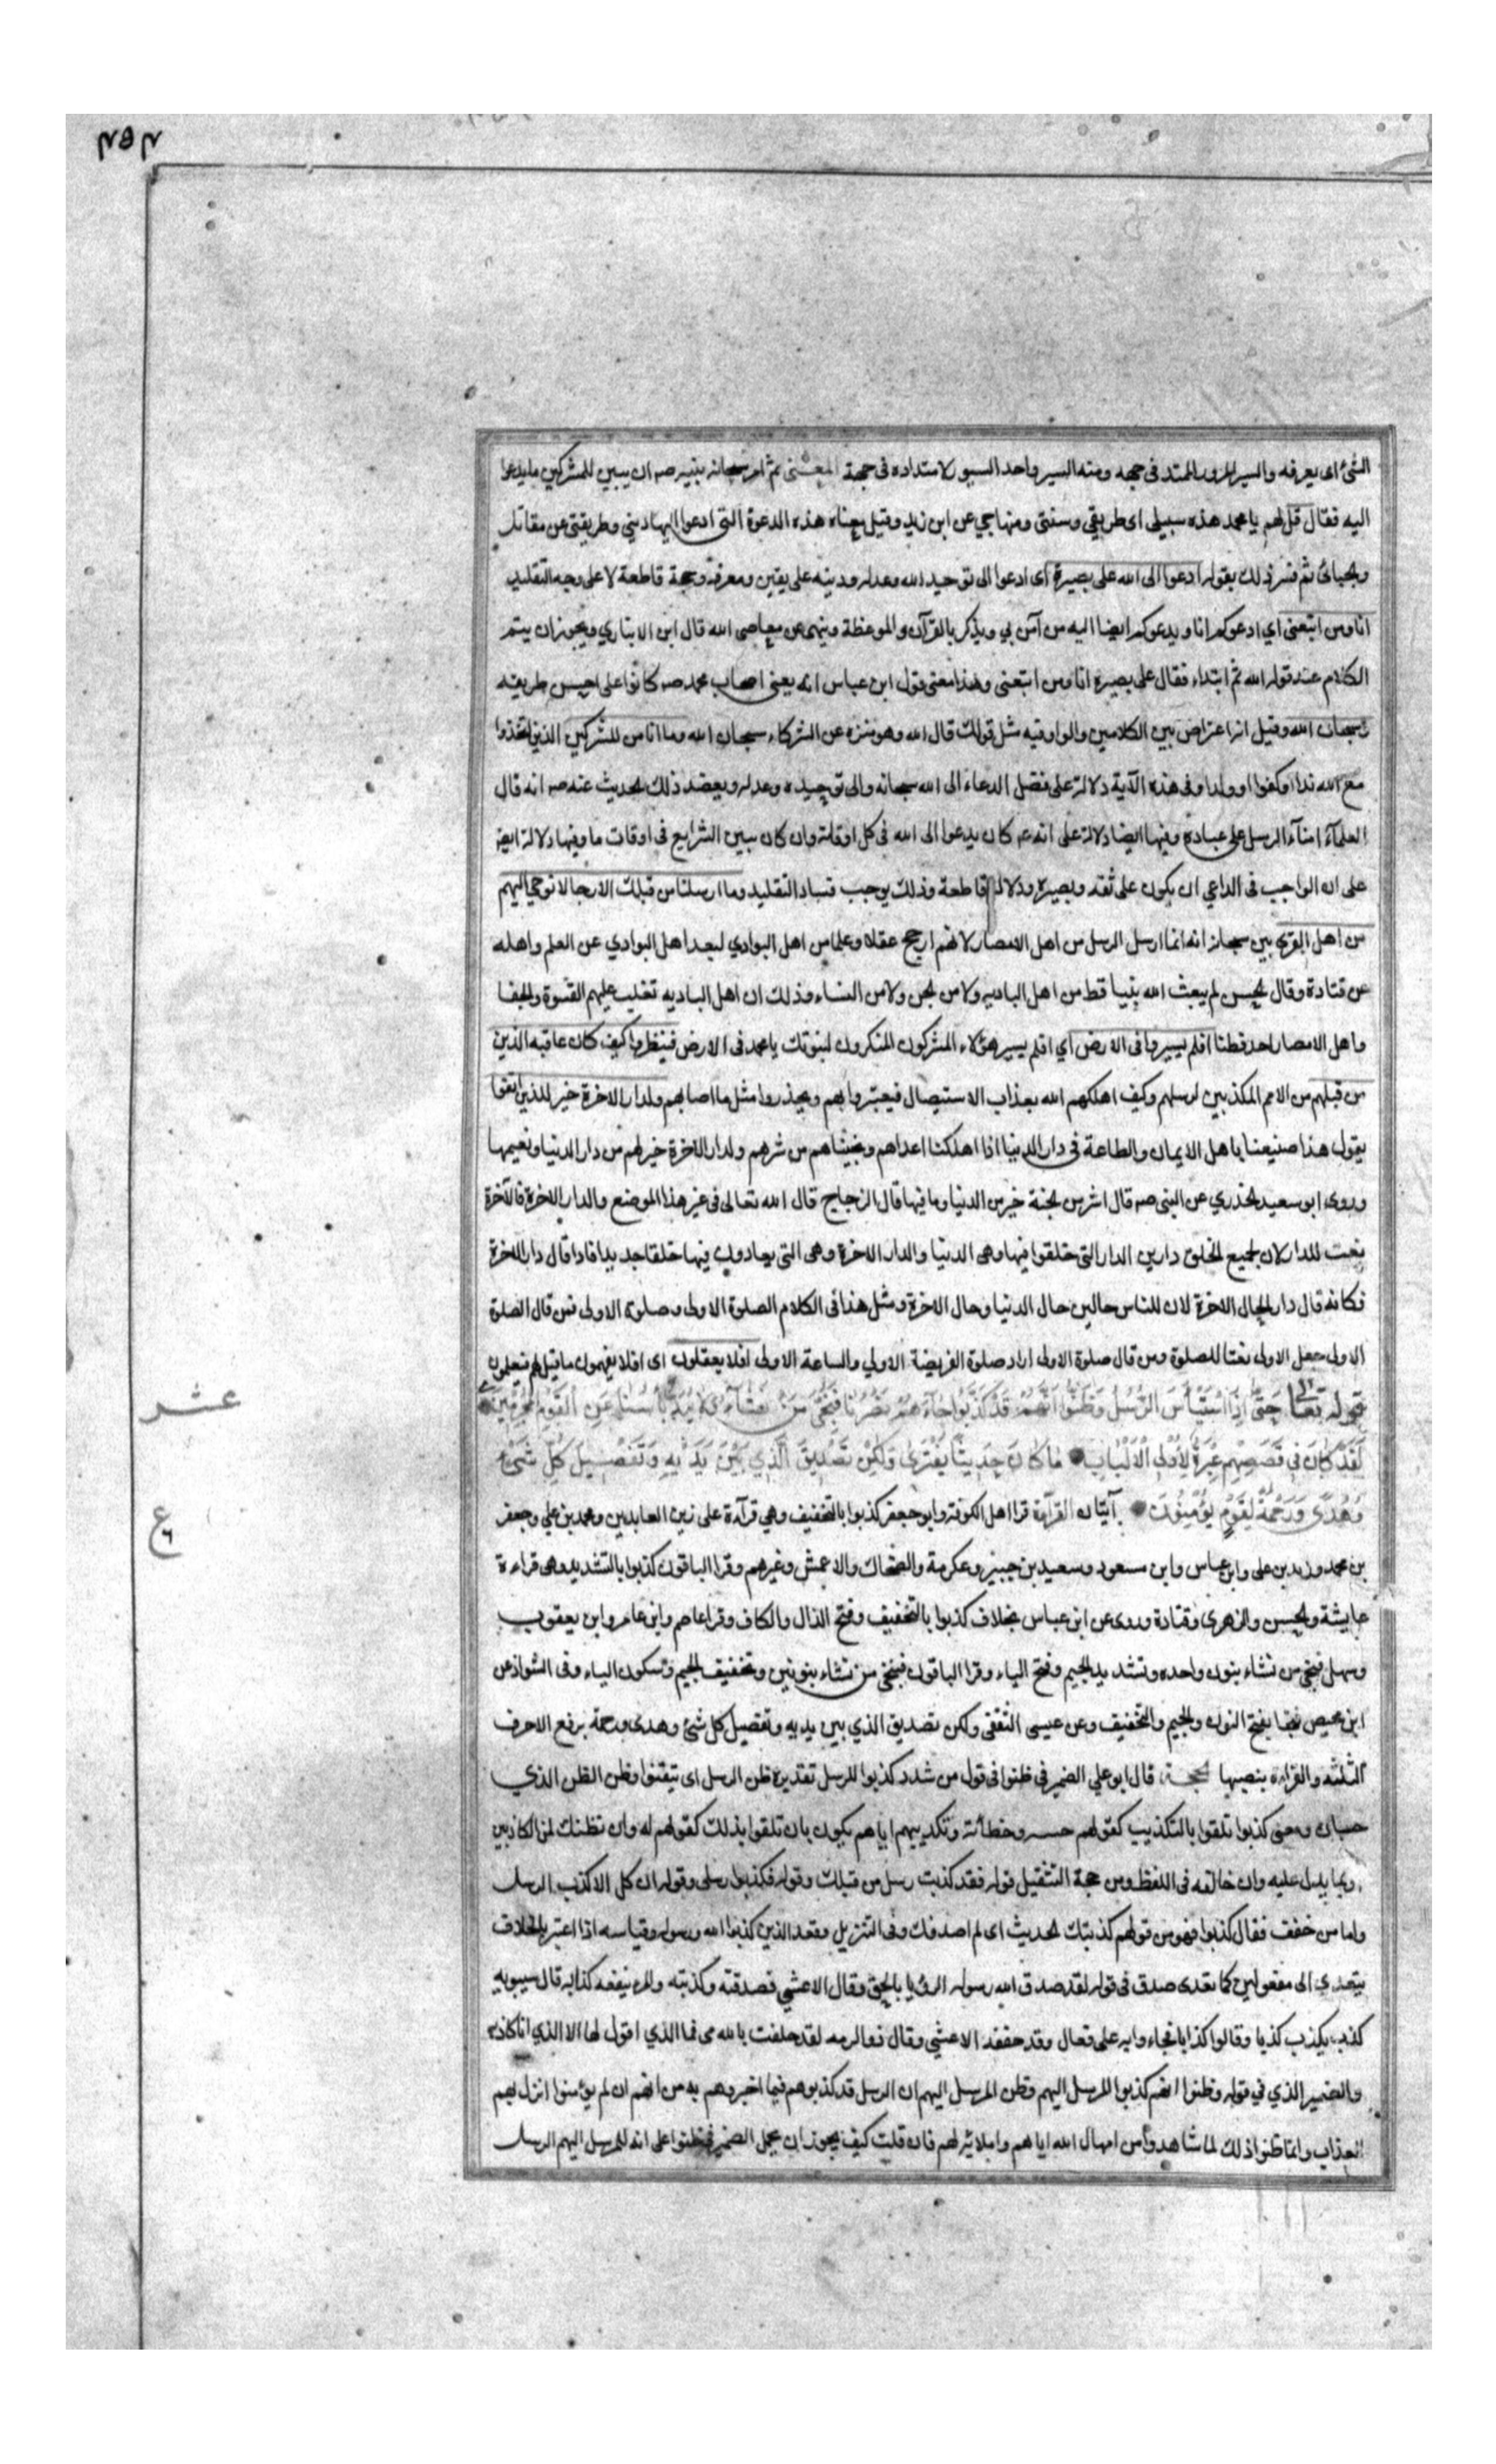 الشئ اى يعرفه والسير المرور الممتد فى جهه ومنه السير واحد السيور لامتداده فى جهة المعنى ثم امر سبحانه نبيه صه ان يبين للمشركين ما يدعوا
اليه فقال قل لهم يا محمد هذه سبيلى اى طريقي وسنتى ومنهاجي عن ابن زيد وقيل معناه هذه الدعوة التى ادعوا اليها دينى وطريقتى عن مقاتل
والجبائى ثم فسر ذلك بقوله ادعوا الى الله على بصيرة اى ادعوا الى توحيد الله وعدله ودينه على يقين ومعرفة وحجة قاطعة لا على وجه التقليد
انا ومن اتبعنى اي ادعوكم انا ويدعوكم ايضا اليه من آمن بي ويذكر بالقرآن والموعظة وينهى عن معاصى الله قال ابن الانباري ويجوز ان يتم
الكلام عند قوله الله ثم ابتداء فقال على بصيرة انا ومن اتبعنى وهذا معنى قول ابن عباس انه يعنى اصحاب محمد صه كانوا على احسن طريقه
وسبحان الله وقيل انه اعتراض بين الكلامين والواو فيه مثل قولك قال الله وهو منزه عن الشركاء سبحان الله وما انا من المشركين الذين اتخذوا
مع الله ندا او كفوا او ولدا وفى هذه الآية دلالة على فضل الدعاء الى الله سبحانه والى توحيده وعدله ويعضد ذلك الحديث عنه صه انه قال
العلمآء امنآء الرسل على عباده وفيها ايضا دلالة على انه عه كان يدعوا الى الله فى كل اوقاته وان كان يبين الشرايع فى اوقات ما وفيها دلالة ايضا
على ان الواجب فى الداعي ان يكون على ثقه وبصيرة ودلالة قاطعة وذلك يوجب فساد التقليد وما ارسلنا من قبلك الا رجالا نوحي اليهم
من اهل القرى بين سبحانه انه انما ارسل الرسل من اهل الامصار لانهم ارجح عقلا وعلما من اهل البوادي لبعد اهل البوادي عن العلم واهله
عن قتادة وقال الحسن لم يبعث الله نبيا قط من اهل الباديه ولا من الجن ولا من النساء وذلك ان اهل الباديه تغلب عليهم القسوة والجفا
واهل الامصار احد فطنا افلم يسيروا فى الارض اي افلم يسير هؤلاء المشركون المنكرون لنبوتك يا محمد فى الارض فينظروا كيف كان عاقبه الذين
من قبلهم من الامم المكذبين لرسلهم وكيف اهلكهم الله بعذاب الاستيصال فيعتبروا بهم ويحذروا مثل ما اصابهم ولدار الاخرة خير للذين اتقوا
يقول هذا صنيعنا باهل الايمان والطاعة فى دار الدنيا اذا اهلكنا اعداهم ونجيناهم من شرهم ولدار الاخرة خير لهم من دار الدنيا ونعيمها
وروى ابو سعيد الخدري عن النبى صه قال لشبر من الجنة خير من الدنيا وما فيها قال الزجاج قال الله تعالى فى غير هذا الموضع والدار الاخرة فالآخرة
نعت للدار لان لجميع الخلق دارين الدار التى خلقوا فيها وهى الدنيا والدار الاخرة وهى التى يعادون فيها خلقا جديدا فاذا قال دار الاخرة
فكانه قال دار الحال الاخرة لان للناس حالين حال الدنيا وحال الاخرة ومثل هذا فى الكلام الصلوة الاولى وصلوة الاولى فمن قال الصلوة
الاولى جعل الاولى نعتا للصلوة ومن قال صلوة الاولى اراد صلوة الفريضة الاولي والساعة الاولى افلا يعقلون اى افلا يفهمون ما قيل لهم فيعلمون
قوله تعالى حَتَّى اِذَا اسْتَيْأَسَ الرُّسُلُ وَظَنُّوا اَنَّهُمْ قَدْ كُذِبُوا جَاءَهُمْ نَصْرُنَا فَنُجِّىَ مَنْ نَشَآءُ وَلَا يُرَدُّ بَأْسُنَا عَنِ الْقَوْمِ الْمُجْرِمِينَ
لَقَدْ كَانَ فِى قَصَصِهِمْ عِبْرَةٌ لِاُولِى الْاَلْبَابِ مَا كَانَ حَدِيثًا يُفْتَرَى وَلَكِنْ تَصْدِيقَ الَّذِي بَيْنَ يَدَيْهِ وَتَفْصِيلَ كُلِّ شَيْءٍ
وَهُدًى وَرَحْمَةً لِقَوْمٍ يُؤْمِنُونَ آيتان القرآءة قرا اهل الكوفة وابو جعفر كذبوا بالتخفيف وهي قرآءة على زين العابدين ومحمد بن علي وجعفر
بن محمد وزيد بن على وابن عباس وابن مسعود وسعيد بن جبير وعكرمة والضحاك والاعمش وغيرهم وقرا الباقون كذبوا بالتشديد وهى قراءة
عايشة والحسن والزهرى وقتادة وروى عن ابن عباس بخلاف كذبوا بالتخفيف وفتح الذال والكاف وقرا عاصم وابن عامر وابن يعقوب
وسهل فنجى من نشاء بنون واحده وتشديد الجيم وفتح الياء وقرا الباقون فننجى من نشاء بنونين وتخفيف الجيم وسكون الياء وفى الشواذ عن
ابن محيص فنجا بفتح النون والجيم والتخفيف وعن عيسى الثقفى ولكن تصديق الذي بين يديه وتفصيل كل شئ وهدى ورحمة برفع الاحرف
الثلثه والقراءة بنصبها الحجة قال ابو علي الضمير فى ظنوا فى قول من شدد كذبوا للرسل تقديره ظن الرسل اى تيقنوا وظن الظن الذي
حسبان ومعنى كذبوا تلقوا بالتكذيب كقولهم وخطأته وتكذيبهم اياهم يكون بان تلقوا بذلك كقولهم له وان نظنك لمن الكاذبين
وبما يدل عليه وان خالفه فى اللفظ ومن حجة التثقيل قوله فقد كذبت رسل من قبلك وقوله فكذبوا رسلى وقوله ان كل الا كذب الرسل
واما من خفف فقال كذبوا فهو من قولهم كذبتك الحديث اى لم اصدقك وفى التنزيل وقعد الذين كذبوا الله ورسوله وقياسه اذا اعتبر بالخلاف
يتعدى الى مفعولين كما تعدى صدق فى قوله لقد صدق الله رسوله الرؤيا بالحق وقال الاعشي فصدقته وكذبته والمرء ينفعه كذابه قال سيبويه
كذب يكذب كذبا وقالوا كذابا فجاءوا به على فعال وقد خففه الاعشي وقال ذو الرمه لقد حلفت بالله مى فما الذي اقول لها الا الذي انا كاذبه
والضمير الذي في قوله وظنوا انهم كذبوا للمرسل اليهم وظن المرسل اليهم ان الرسل قد كذبوهم فيما اخبروهم به من انهم ان لم يؤمنوا انزل بهم
العذاب وانما ظنوا ذلك لما شاهدوا من امهال الله اياهم واملائه لهم فان قلت كيف يجوز ان يحمل الضمير فى ظنوا على انه للمرسل اليهم الرسل
عشر
ع